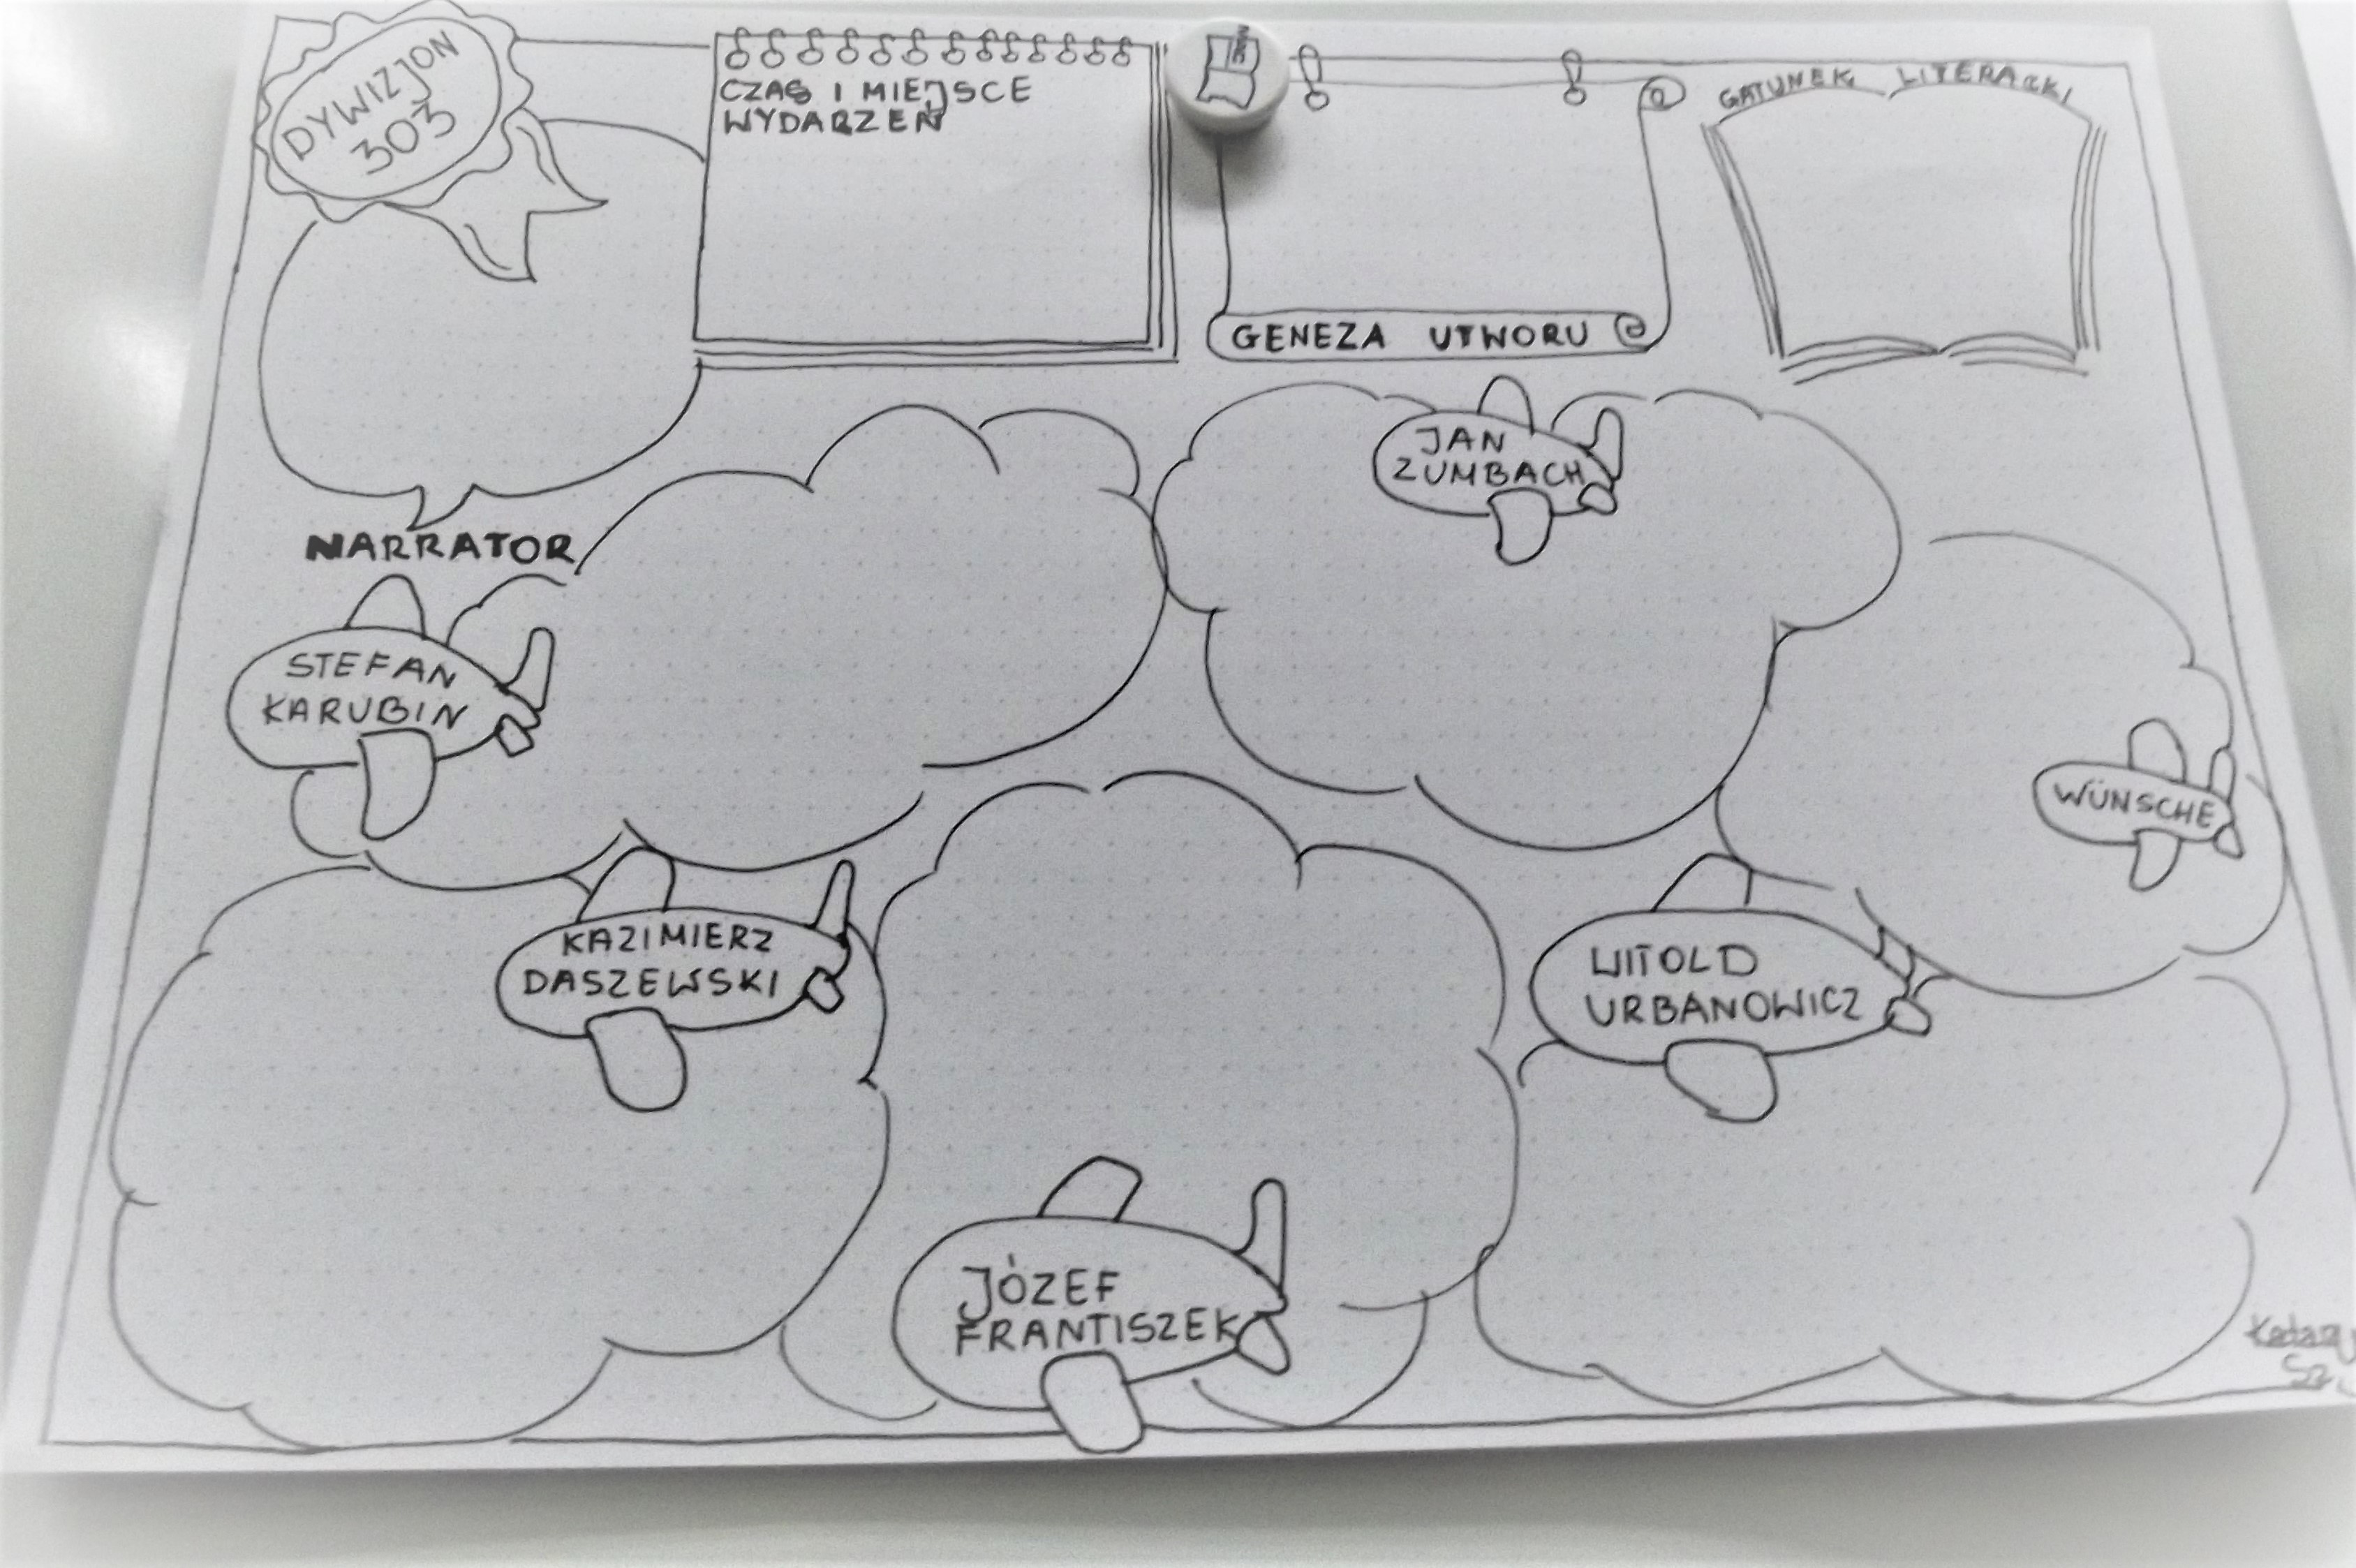 DYWIZJON
303
CZAS I MIEJSCE
WYDARZEŃ
GENEZA UTWORU
GATUNEK LITERACKI
NARRATOR
JAN
ZUMBACH
STEFAN
KARUBIN
WÜNSCHE
KAZIMIERZ
DASZEWSKI
WITOLD
URBANOWICZ
JÓZEF
FRANTISZEK